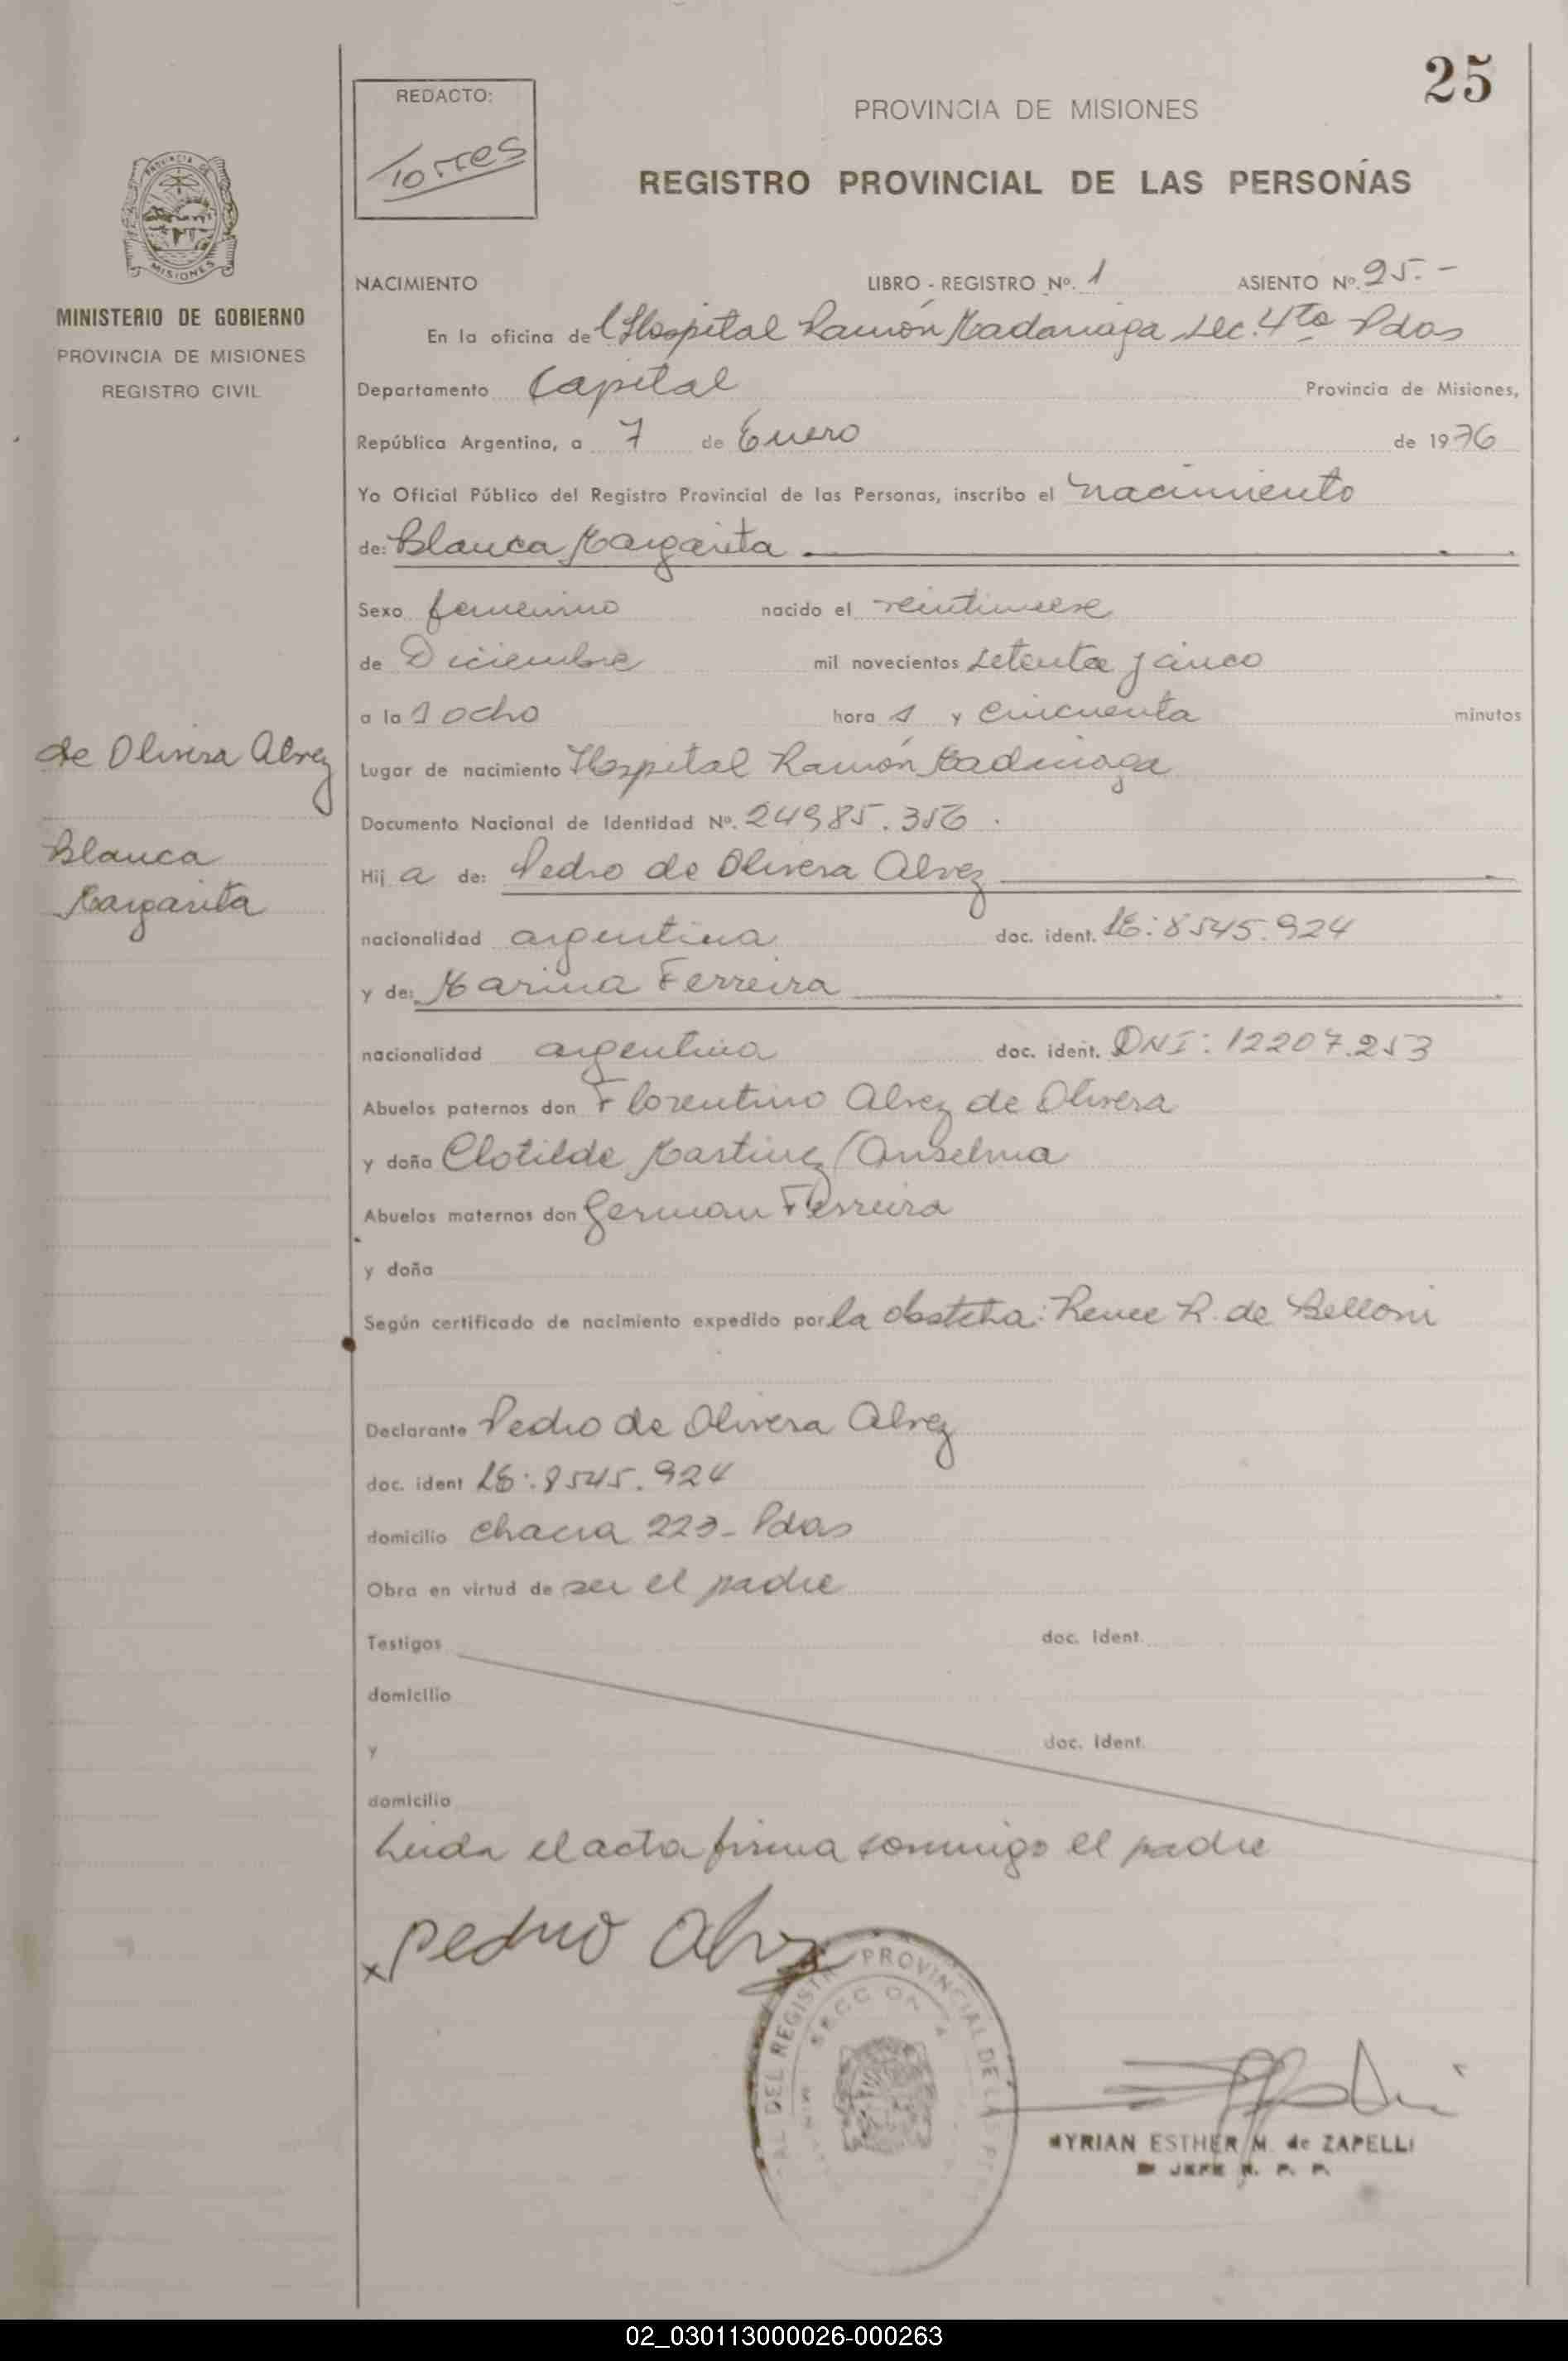 25
REDACTO:
Torres
PROVINCIA DE MISIONES
REGISTRO PROVINCIAL DE LAS PERSONAS
MINISTERIO DE GOBIERNO
PROVINCIA DE MISIONES
REGISTRO CIVIL
NACIMIENTO LIBRO - REGISTRO Nº. 1 ASIENTO Nº. 25.-
En la oficina de l Hospital Ramón Madariaga Sec. 4ta Pdas
Departamento Capital Provincia de Misiones,
República Argentina, a 7 de Enero de 1976
Yo Oficial Público del Registro Provincial de las Personas, inscribo el nacimiento
de: Blanca Margarita
Sexo femenino nacido el veintinueve
de Diciembre mil novecientos setenta y cinco
a la s ocho hora s y cincuenta minutos
de Olivera Alvez
Blanca
Margarita
Lugar de nacimiento Hospital Ramón Madariaga
Documento Nacional de Identidad Nº. 24985.356.
Hij a de: Pedro de Olivera Alvez
nacionalidad argentina doc. ident. LE: 8545.924
y de: Marina Ferreira
nacionalidad argentina doc. ident. DNI: 12207.253
Abuelos paternos don Florentino Alvez de Olivera
y doña Clotilde Martinez/Anselma
Abuelos maternos don German Ferreira
y doña
Según certificado de nacimiento expedido por la obsteta: Renee R. de Belloni
Declarante Pedro de Olivera Alvez
doc. ident LE: 8545.924
domicilio chacra 223- Pdas
Obra en virtud de ser el padre
Testigos doc. ident.
domicilio
y doc. ident.
domicilio
Leida el acta firma conmigo el padre
x pedro Alvez
AL DEL REGISTRO PROVINCIAL DE LAS PE
SECCION 4
MYRIAN ESTHER M. de ZAPELLI
JEFE R. P. P.
02_030113000026-000263